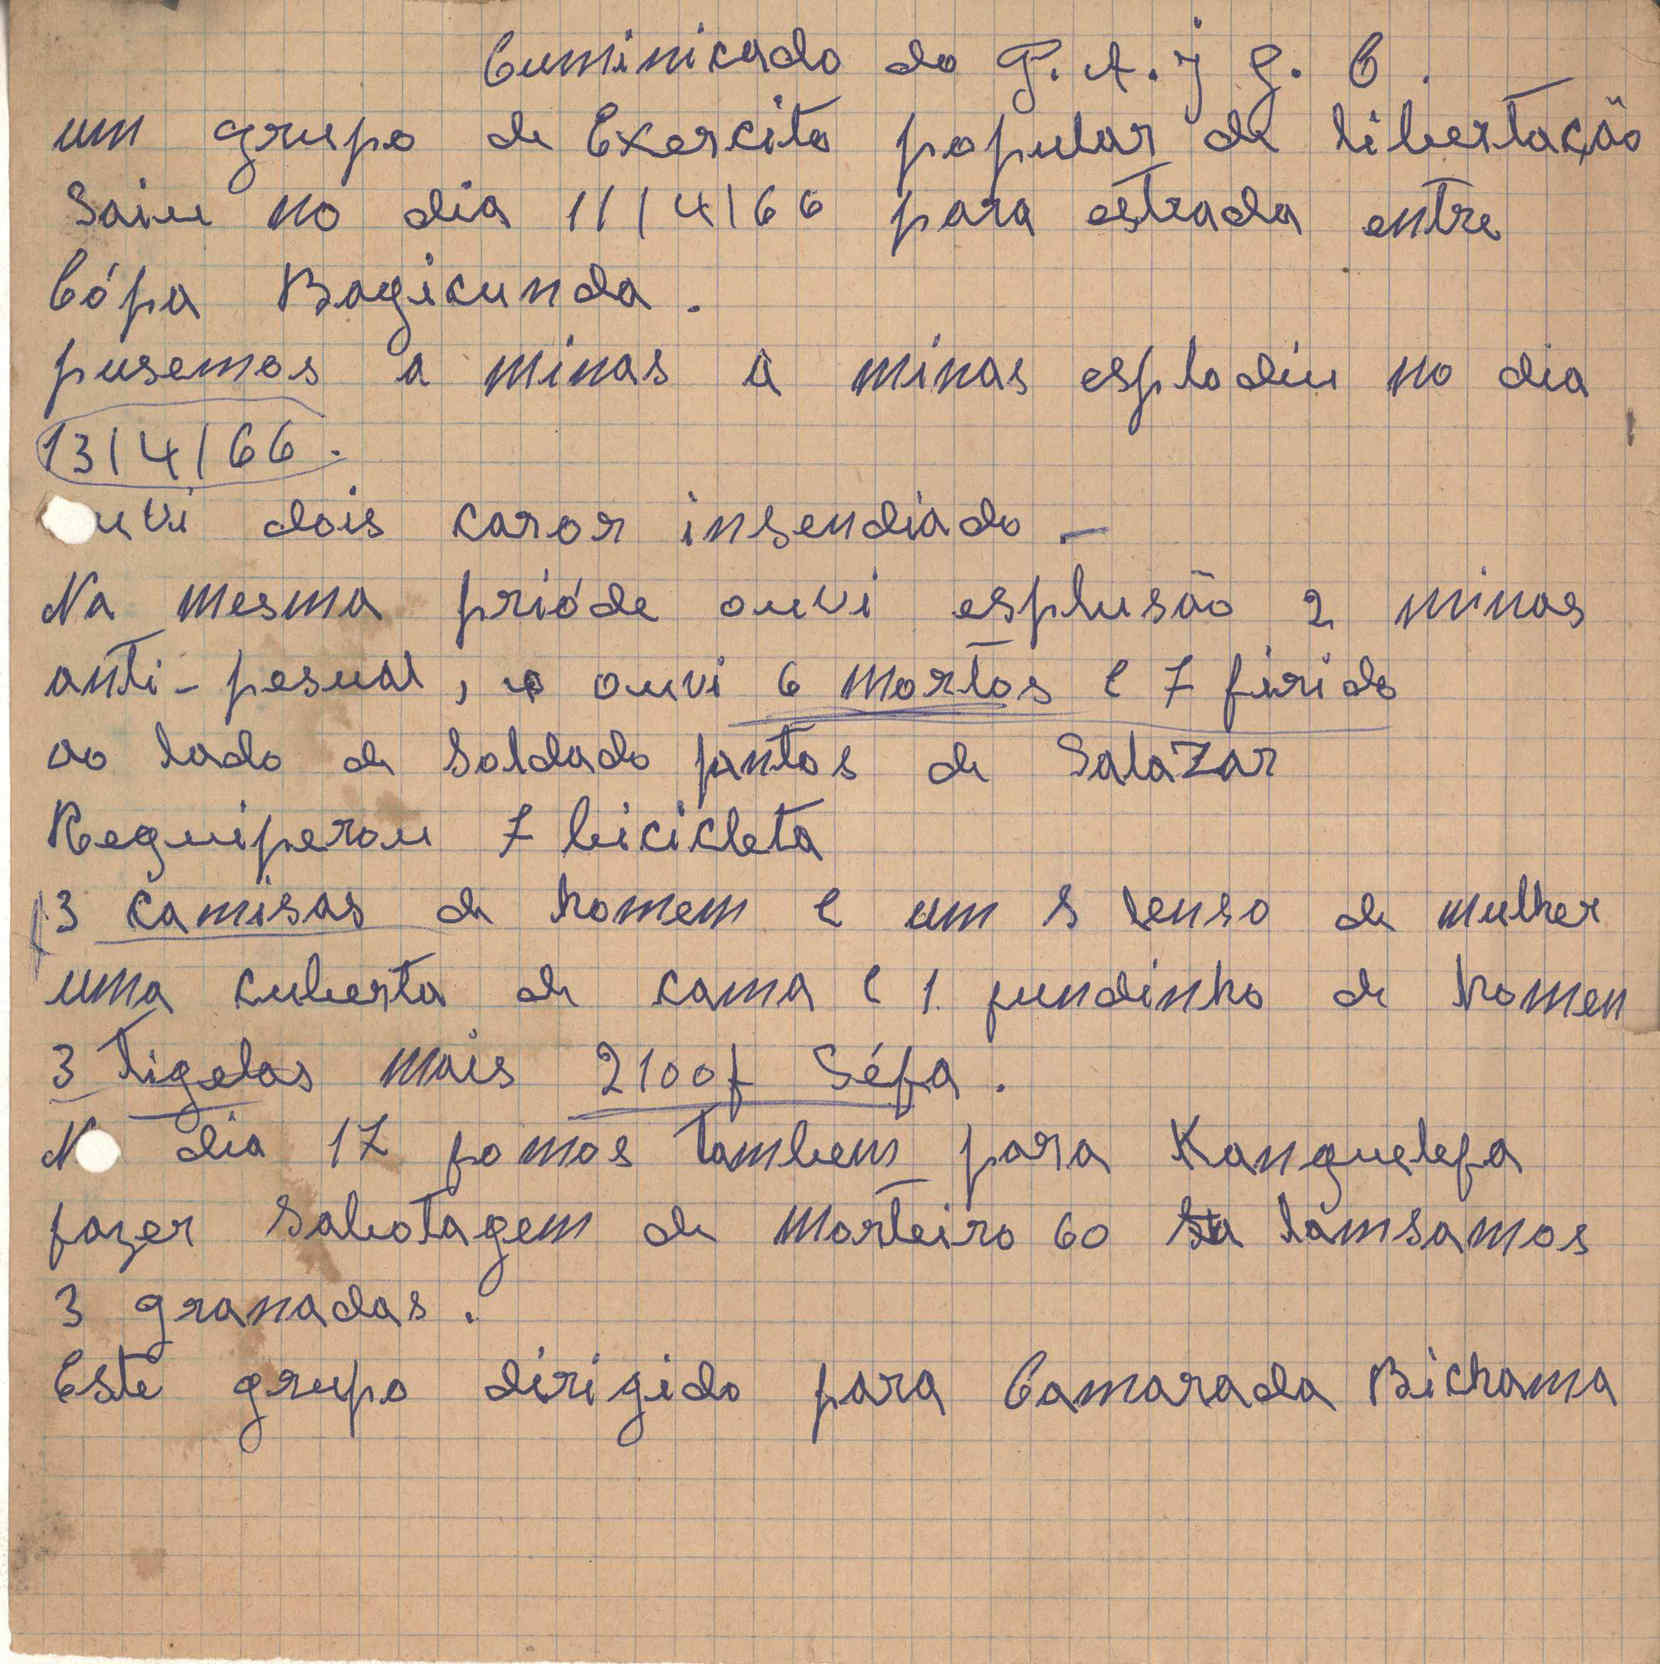 Cuminicado do P. A. j g. C.
um grupo de Exercito popular de libertação
Saiu no dia 11/4/66 para estrada entre
Cópa Bagicunda.
pusemos a minas a minas esplodiu no dia
13/4/66.
uvi dois caror insendiado –
Na mesma prióde ouvi esplusão 2 minas
anti-pesual, ouvi 6 mortos e 7 firido
ao lado de Soldado de Salazar
Requiperou 7 bicicleta
3 camisas de homem e um S lenso de mulher
uma cuberta de cama e 1 fundinho de homen
3 Tigelas mais 2100f Séfa.
No dia 17 fomos tambem para Kanquelefa
fazer Sabotagem de Morteiro 60 lamsamos
3 granadas.
Este grupo dirigido para Camarada Bichama